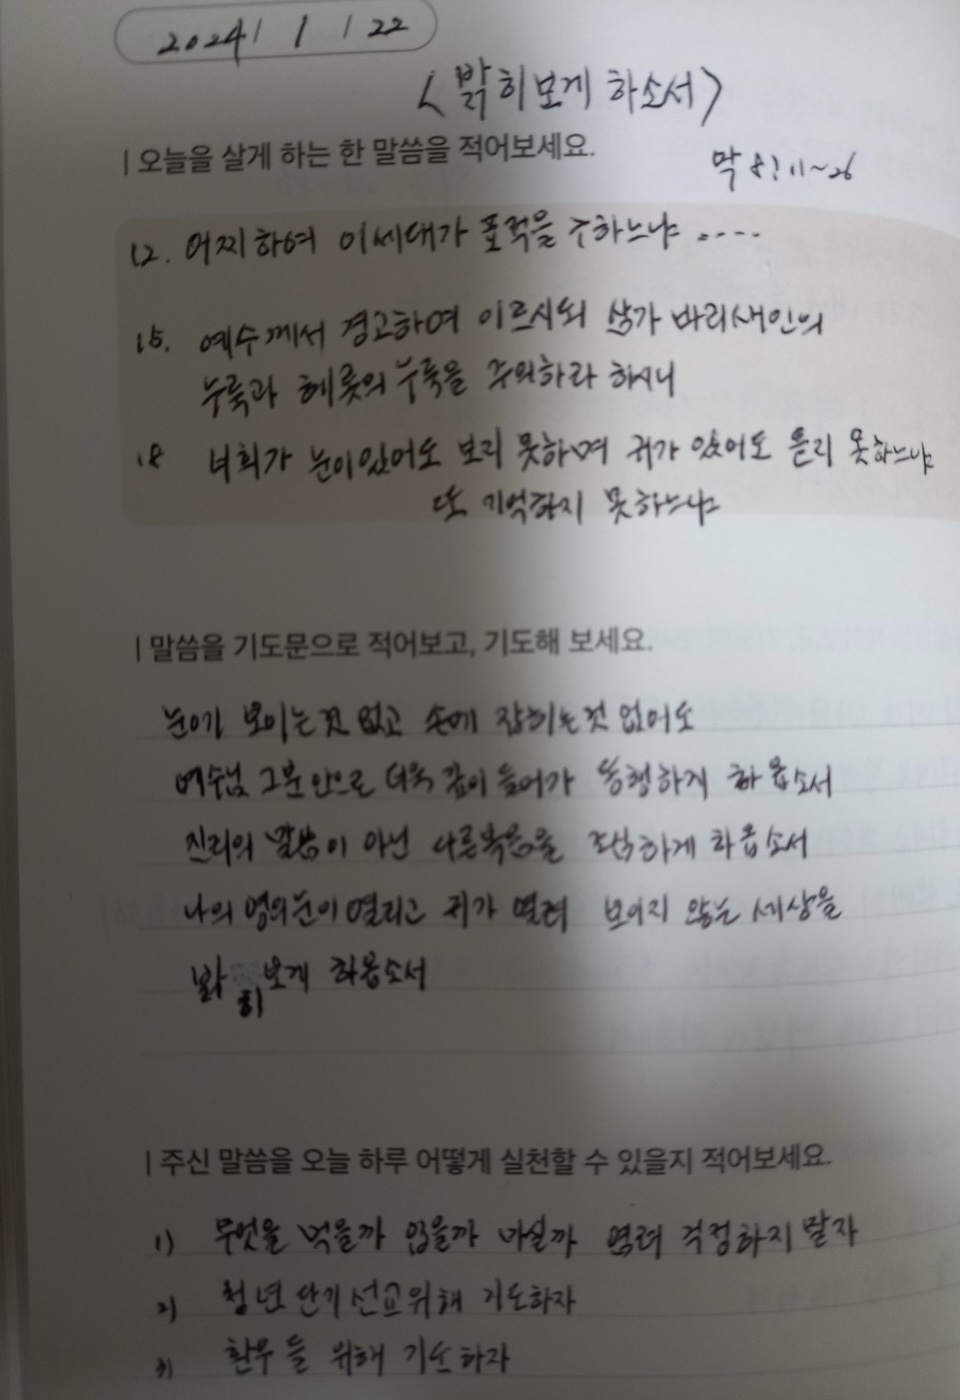 2024 / 1 / 22
<밝히보게 하소서>
| 오늘을 살게 하는 한 말씀을 적어보세요.
막 8:11~26
12. 어찌하여 이세대가 표적을 구하느냐 .....
15. 예수께서 경고하여 이르시되 삼가 바리새인의
누룩과 헤롯의 누룩을 주의하라 하시니
18 너희가 눈이있어도 보지 못하며 귀가 있어도 듣지 못하느냐
또 기억하지 못하느냐
| 말씀을 기도문으로 적어보고, 기도해 보세요.
눈에 보이는것 없고 손에 잡히는것 없어도
예수님 그분안으로 더욱 깊이 들어가 동행하게 하옵소서
진리의 말씀이 아닌 다른복음을 하게 하옵소서
나의 영의눈이 열리고 귀가 열려 보이지 않는 세상을
밝히 보게 하옵소서
| 주신 말씀을 오늘 하루 어떻게 실천할 수 있을지 적어보세요.
1) 무엇을 먹을까 입을까 마실까 염려 걱정하지 말자
2) 청년 단기선교위해 기도하자
3) 환우들 위해 기도하자